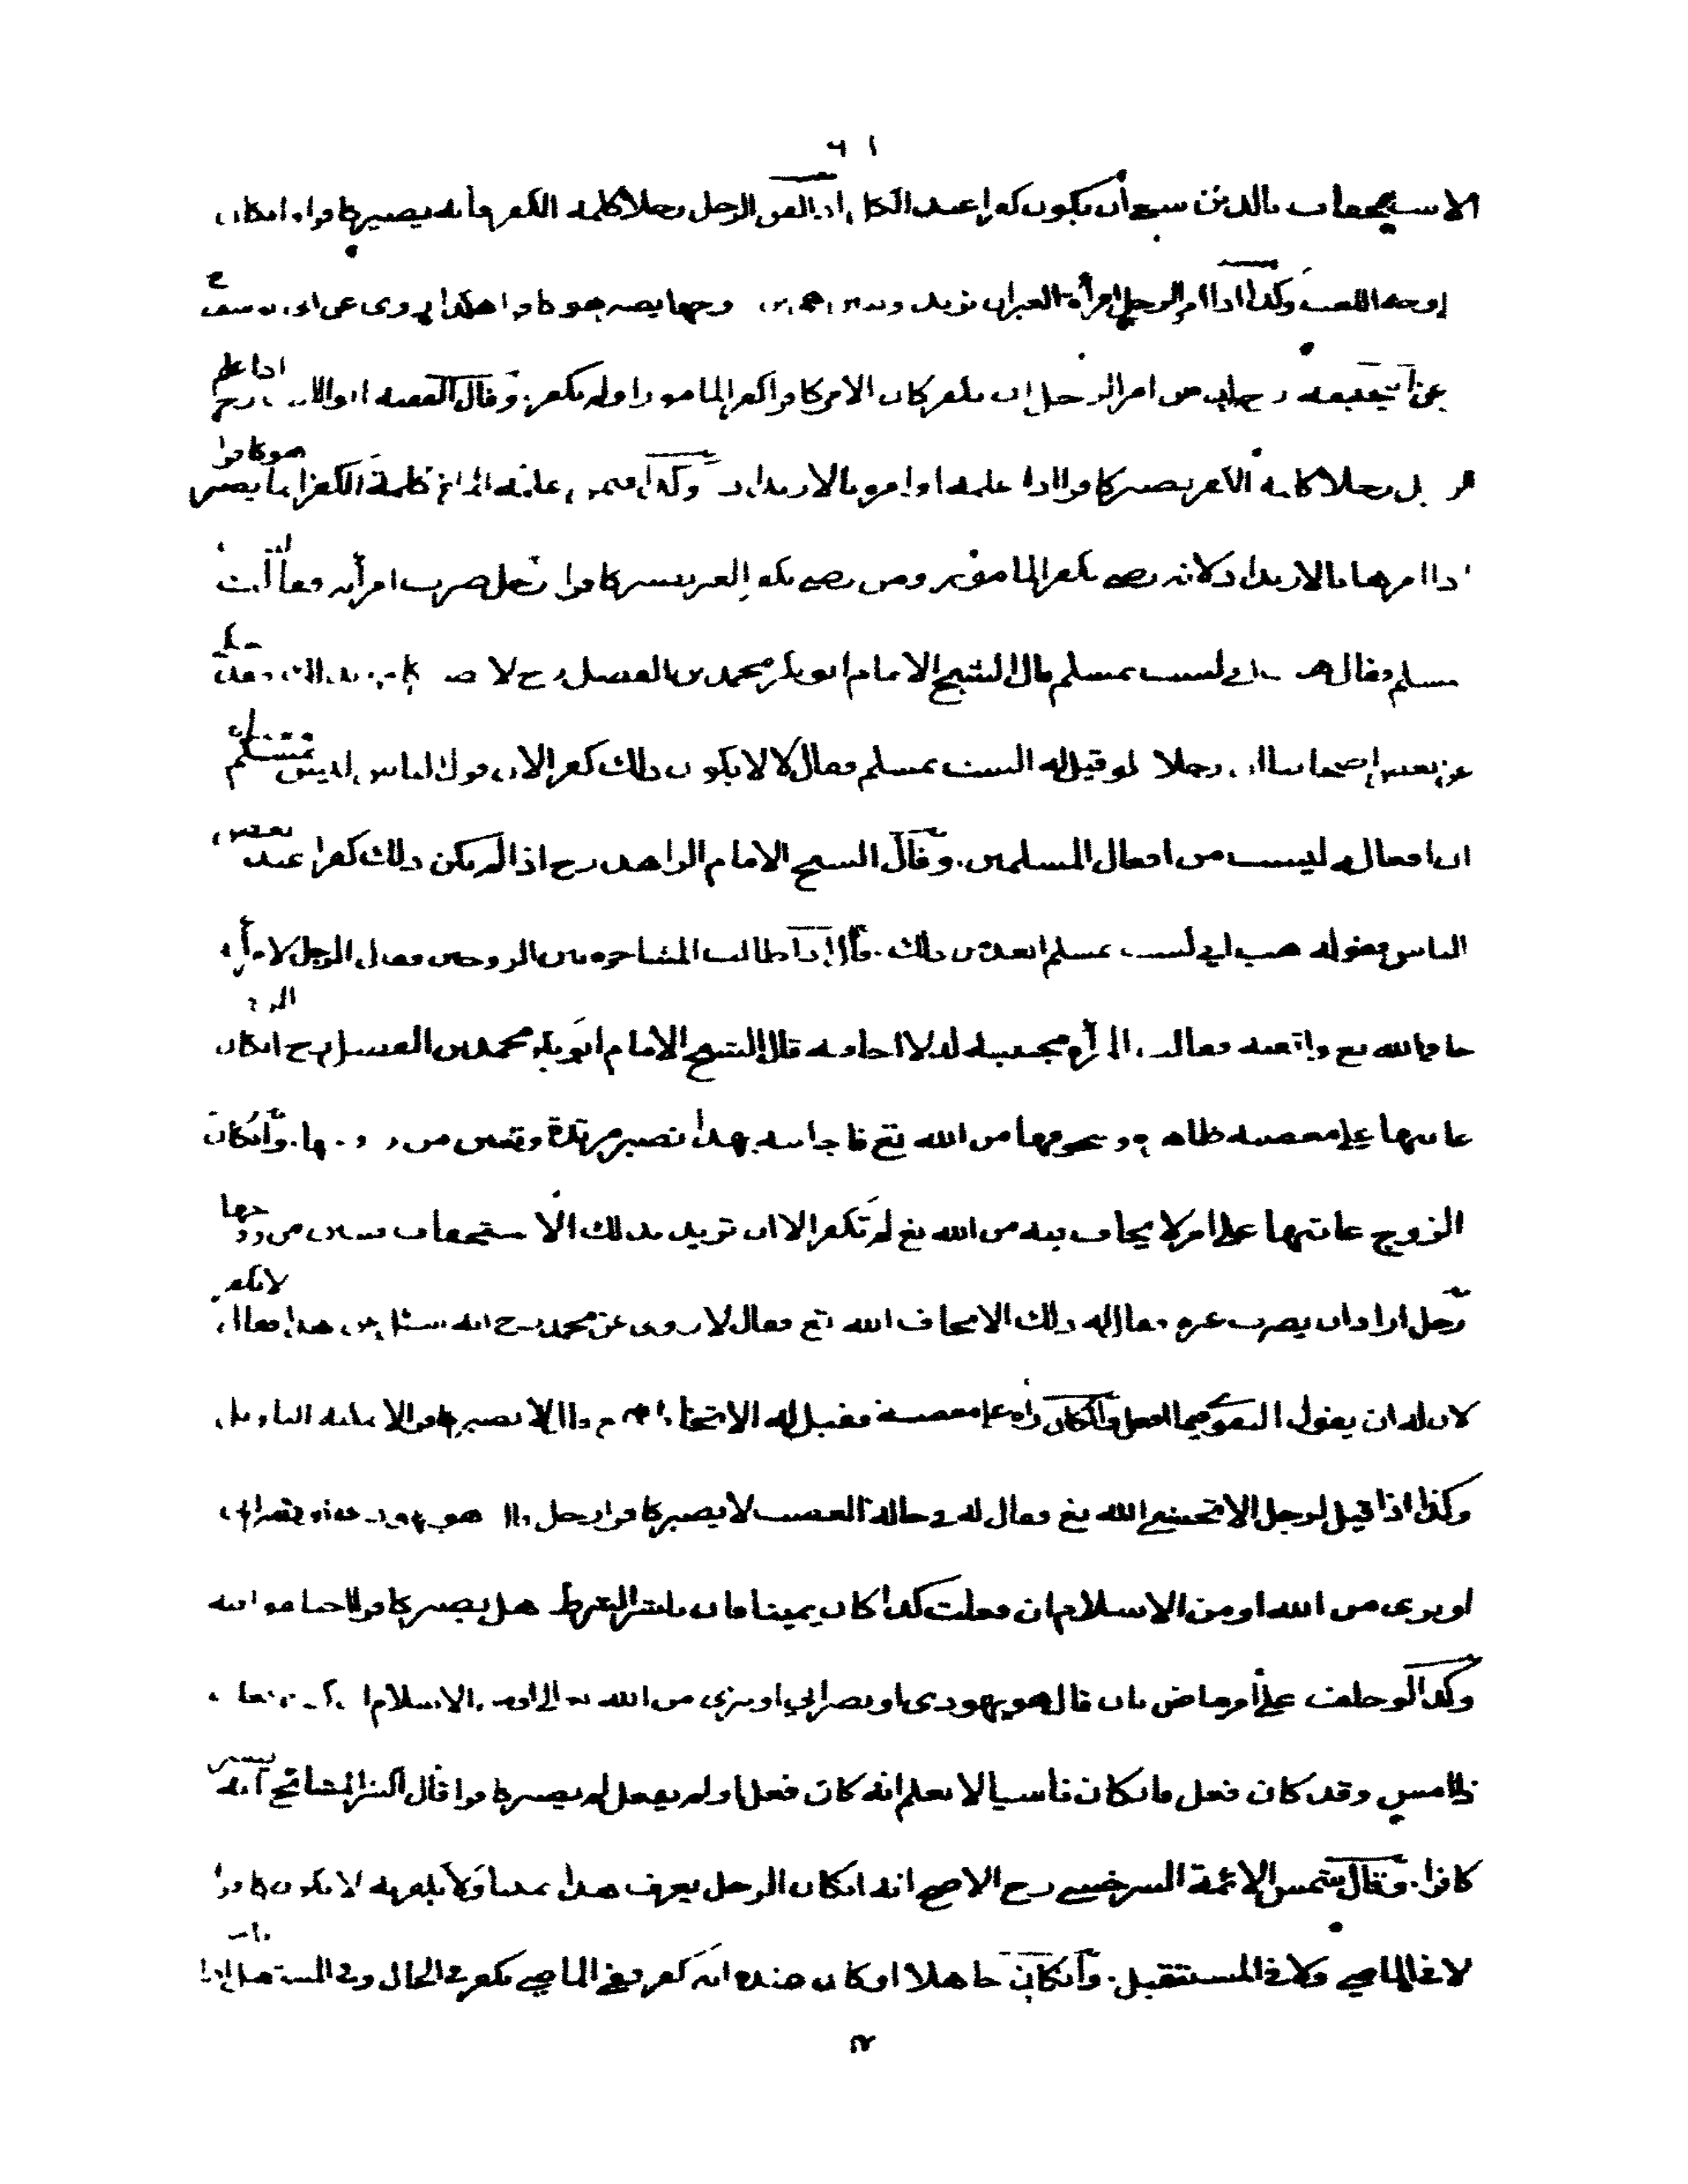 الاستخفاف بالدين ينبغي ان يكون كفرا عند الكل اذا لقن الرجل رجلا كلمة الكفر فانه يصير كافرا وان كان
وجه اللعب وكذا اذا امر الرجل امرأة الغير ان ترتد وتبين من زوجها يصير هو كافرا هكذا يروى عن ابي يوسف رح
عن ابي حنيفة رح ان من امر الرجل ان يكفر كان الآمر كافرا كفر المأمور او لم يكفر وقال الفقيه ابو الليث رح اذا علم
الرجل رجلا كلمة الكفر يصير كافرا اذا علمه او امره بالارتداد وكذا فيمن علم المرأة كلمة الكفر انما يصير هو كافرا
اذا امرها بالارتداد لانه رضي بكفر المأمور ومن رضي بكفر الغير يصير كافرا رجل ضرب امرأته فقالت لست
مسلم فقال هب اني لست بمسلم قال الشيخ الامام ابو بكر محمد بن الفضل رح لا يصير كافرا بذلك وقد حكي
عن بعض اصحابنا ان رجلا لو قيل له الست بمسلم فقال لا لا يكون ذلك كفرا لان قول الناس ليس بمسلم
ان افعاله ليست من افعال المسلمين. وقال الشيخ الامام الزاهد رح اذا لم يكن ذلك كفرا عند بعض
الناس فقوله هب اني لست بمسلم ابعد من ذلك. قال اذا طالت المشاجرة بين الزوجين فقال الرجل لامرأته
خافي الله تع واتقيه فقالت المرأة مجيبة له لا اخافه قال الشيخ الامام ابو بكر محمد بن الفضل رح ان كان الزوج
عاتبها على معصية ظاهرة وخوفها من الله تع فاجابته بهذا تصير مرتدة وتبين من زوجها. وان كان
الزوج عاتبها على امر لا يخاف فيه من الله تع لم تكفر الا ان تريد بذلك الاستخفاف فتبين من زوجها
رجل اراد ان يضرب غيره فقال له ذلك الا تخاف الله تع فقال لا روي عن محمد رح انه سئل عن هذا فقال لا يكفر
لان له ان يقول التقوى فيما افعل وان كان رآه على معصية فقيل له الا تخاف الله تع فقال لا يصير كافرا لانه لا يمكنه التأويل
وكذا اذا قيل لرجل الا تخشى الله تع فقال له في حالة الغضب لا يصير كافرا رجل قال هو يهودي او نصراني
او بريء من الله او من الاسلام ان فعلت كذا كان يمينا فان باشر الشرط هل يصير كافرا اختلفوا فيه
وكذا لو حلف على امر ماض بان قال هو يهودي او نصراني او بريء من الله تعالى او من الاسلام ان كنت فعلت
امس وقد كان فعل فان كان ناسيا لا يعلم انه كان فعل او لم يفعل لم يصر كافرا قال اكثر المشائخ انه يصير
كافرا. وقال شمس الائمة السرخسي رح الاصح انه ان كان الرجل يعرف هذا يمينا ولا يكفر به لا يكون كافرا
لا في الماضي ولا في المستقبل. وان كان جاهلا او كان عنده انه كفر ففي الماضي يكفر في الحال وفي المستقبل اذا